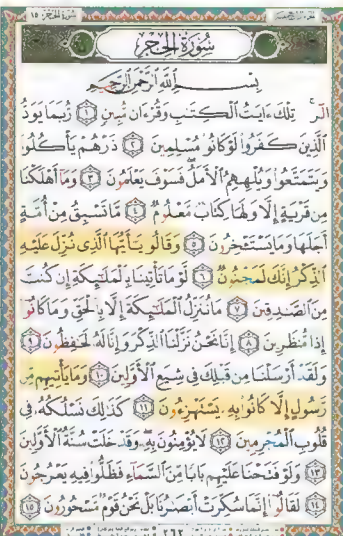 سُورَةُ الحِجر ١٥
سُورَةُ الحِجْرِ
بِسْمِ اللَّهِ الرَّحْمَٰنِ الرَّحِيمِ
الٓر ۚ تِلْكَ ءَايَٰتُ ٱلْكِتَٰبِ وَقُرْءَانٍ مُّبِينٍ ١ رُّبَمَا يَوَدُّ
ٱلَّذِينَ كَفَرُوا۟ لَوْ كَانُوا۟ مُسْلِمِينَ ٢ ذَرْهُمْ يَأْكُلُوا۟
وَيَتَمَتَّعُوا۟ وَيُلْهِهِمُ ٱلْأَمَلُ ۖ فَسَوْفَ يَعْلَمُونَ ٣ وَمَآ أَهْلَكْنَا
مِن قَرْيَةٍ إِلَّا وَلَهَا كِتَابٌ مَّعْلُومٌ ٤ مَّا تَسْبِقُ مِنْ أُمَّةٍ
أَجَلَهَا وَمَا يَسْتَـْٔخِرُونَ ٥ وَقَالُوا۟ يَٰٓأَيُّهَا ٱلَّذِى نُزِّلَ عَلَيْهِ
ٱلذِّكْرُ إِنَّكَ لَمَجْنُونٌ ٦ لَّوْ مَا تَأْتِينَا بِٱلْمَلَٰٓئِكَةِ إِن كُنتَ
مِنَ ٱلصَّٰدِقِينَ ٧ مَا نُنَزِّلُ ٱلْمَلَٰٓئِكَةَ إِلَّا بِٱلْحَقِّ وَمَا كَانُوٓا۟
إِذًا مُّنظَرِينَ ٨ إِنَّا نَحْنُ نَزَّلْنَا ٱلذِّكْرَ وَإِنَّا لَهُۥ لَحَٰفِظُونَ ٩
وَلَقَدْ أَرْسَلْنَا مِن قَبْلِكَ فِى شِيَعِ ٱلْأَوَّلِينَ ١٠ وَمَا يَأْتِيهِم مِّن
رَّسُولٍ إِلَّا كَانُوا۟ بِهِۦ يَسْتَهْزِءُونَ ١١ كَذَٰلِكَ نَسْلُكُهُۥ فِى
قُلُوبِ ٱلْمُجْرِمِينَ ١٢ لَا يُؤْمِنُونَ بِهِۦ ۖ وَقَدْ خَلَتْ سُنَّةُ ٱلْأَوَّلِينَ
١٣ وَلَوْ فَتَحْنَا عَلَيْهِم بَابًا مِّنَ ٱلسَّمَآءِ فَظَلُّوا۟ فِيهِ يَعْرُجُونَ
١٤ لَقَالُوٓا۟ إِنَّمَا سُكِّرَتْ أَبْصَٰرُنَا بَلْ نَحْنُ قَوْمٌ مَّسْحُورُونَ ١٥
٢٦٢